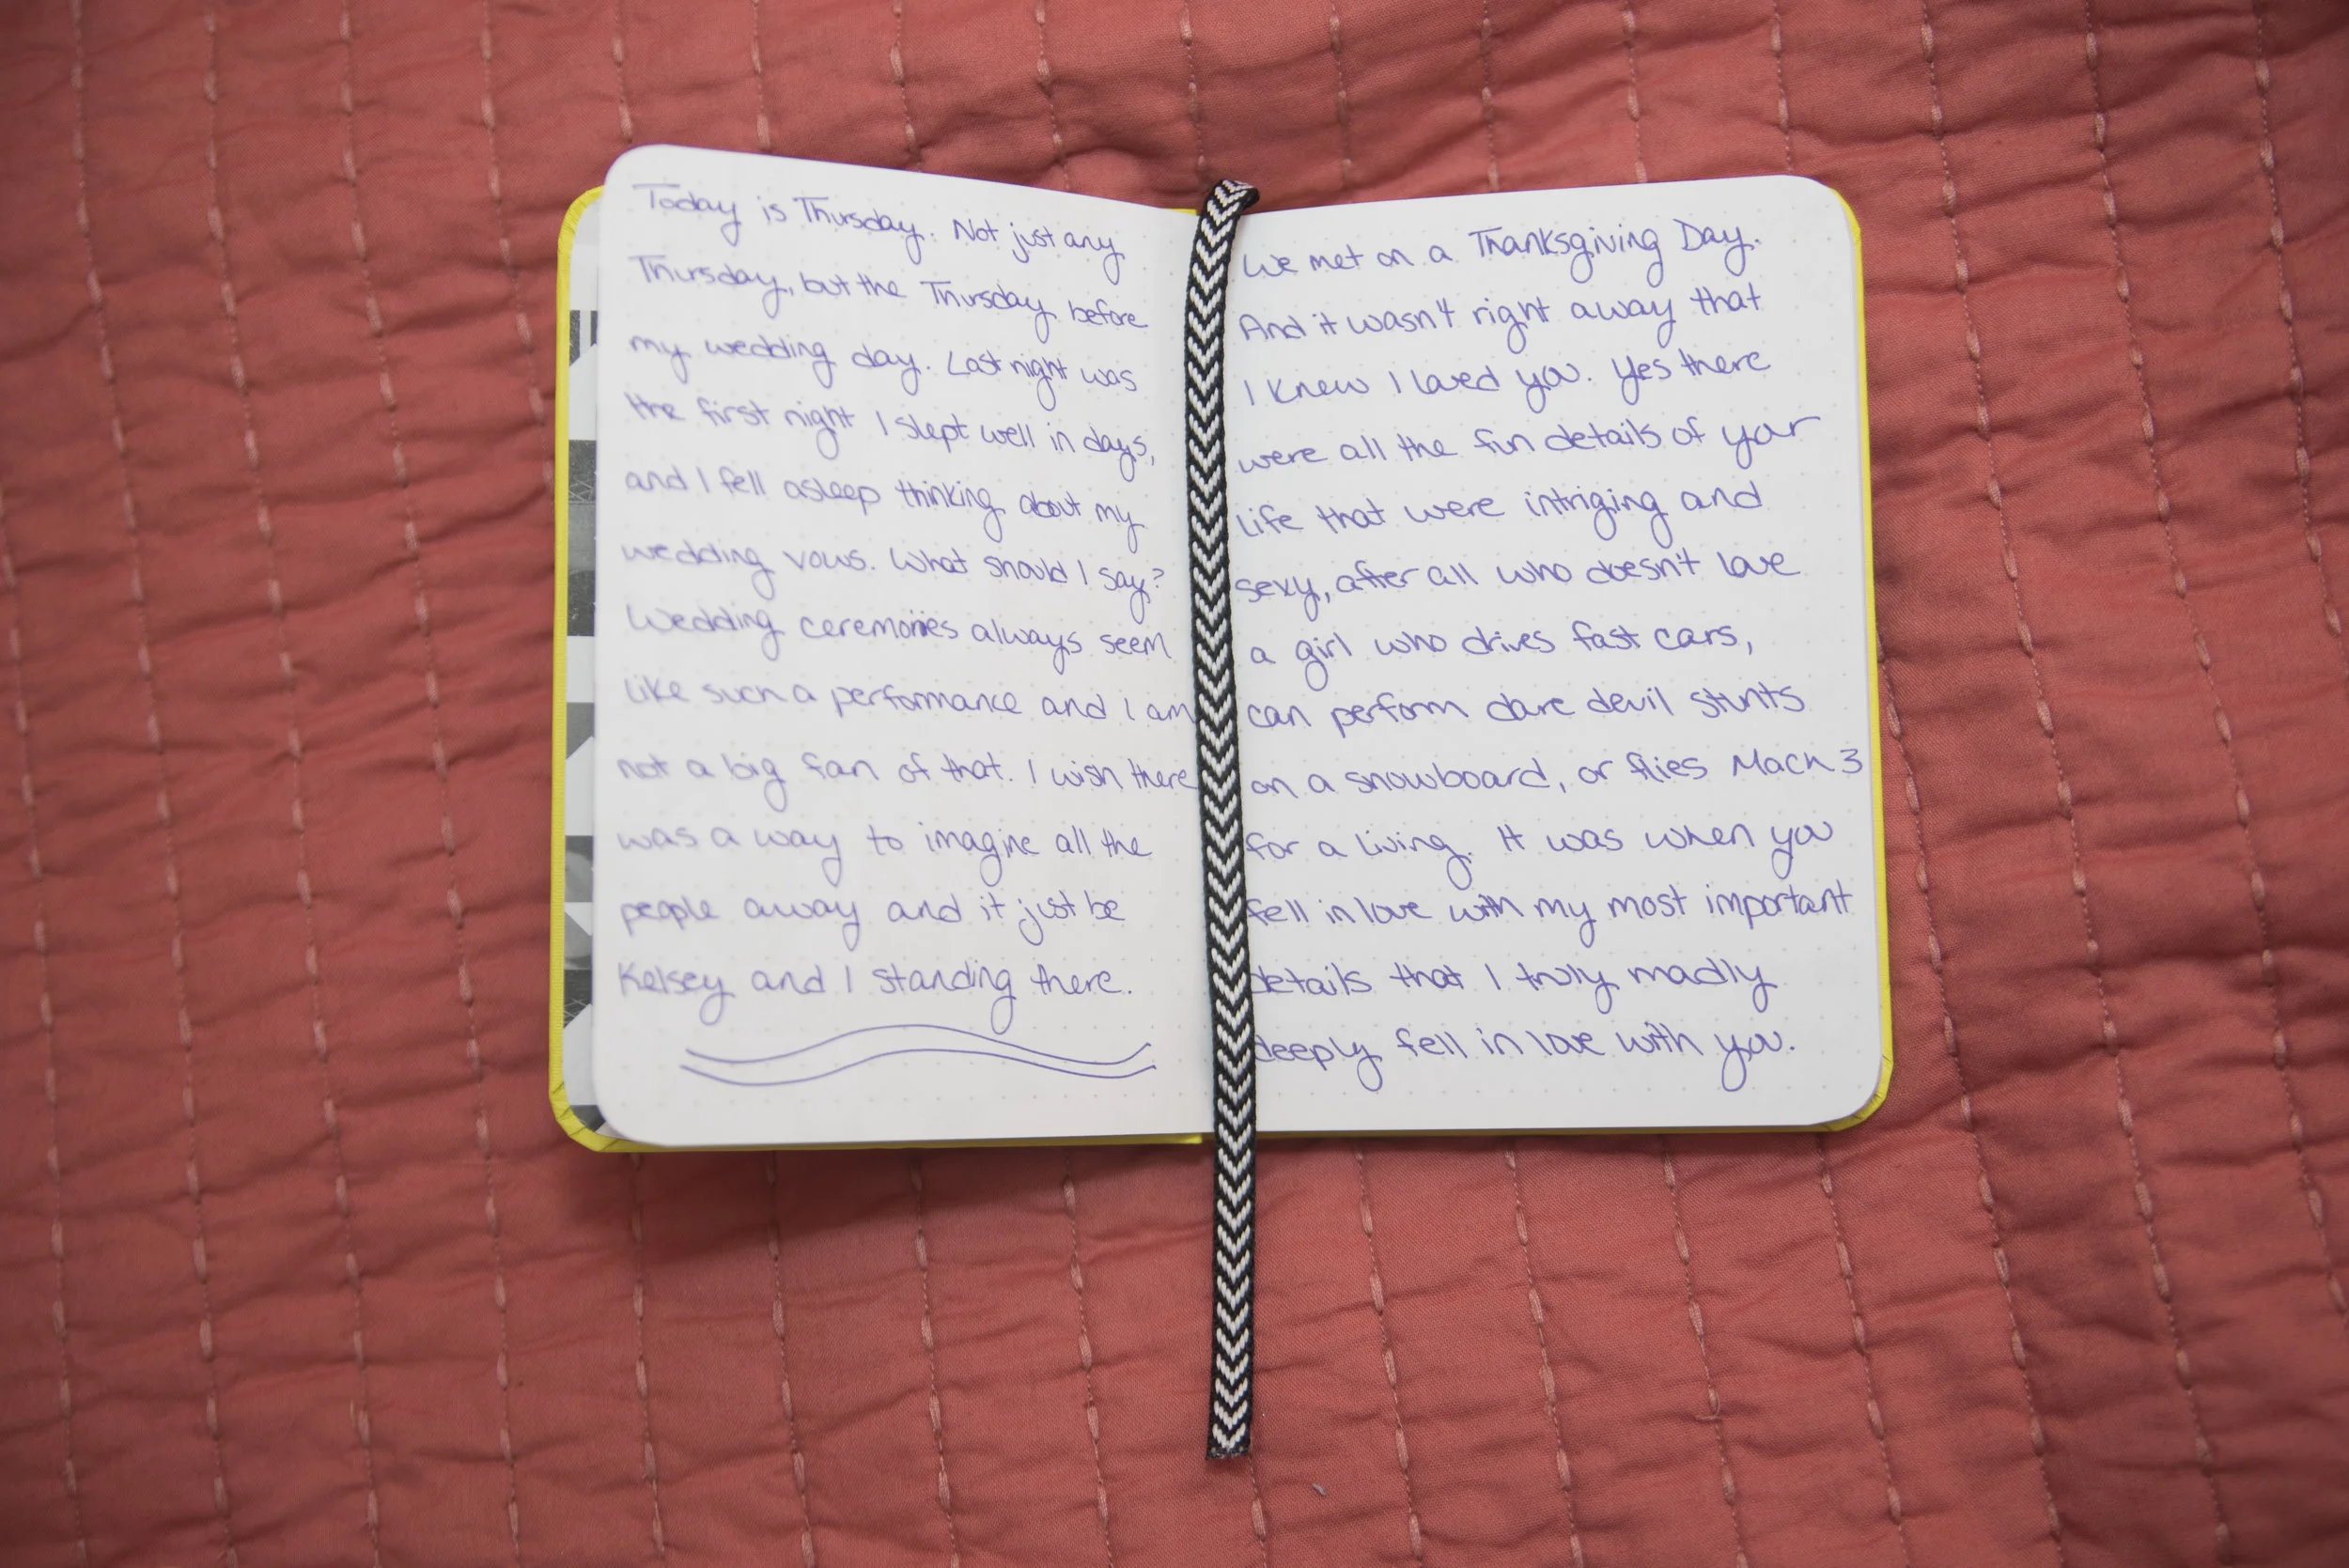 Today is Thursday. Not just any
Thursday, but the Thursday before
my wedding day. Last night was
the first night I slept well in days,
and I fell asleep thinking about my
wedding vows. What should I say?
Wedding ceremonies always seem
like such a performance and I am
not a big fan of that. I wish there
was a way to imagine all the
people away and it just be
Kelsey and I standing there.
We met on a Thanksgiving Day.
And it wasn't right away that
I knew I loved you. Yes there
were all the fun details of your
life that were intriging and
sexy, after all who doesn't love
a girl who drives fast cars,
can perform dare devil stunts
on a snowboard, or flies Mach 3
for a living. It was when you
fell in love with my most important
details that I truly madly
deeply fell in love with you.